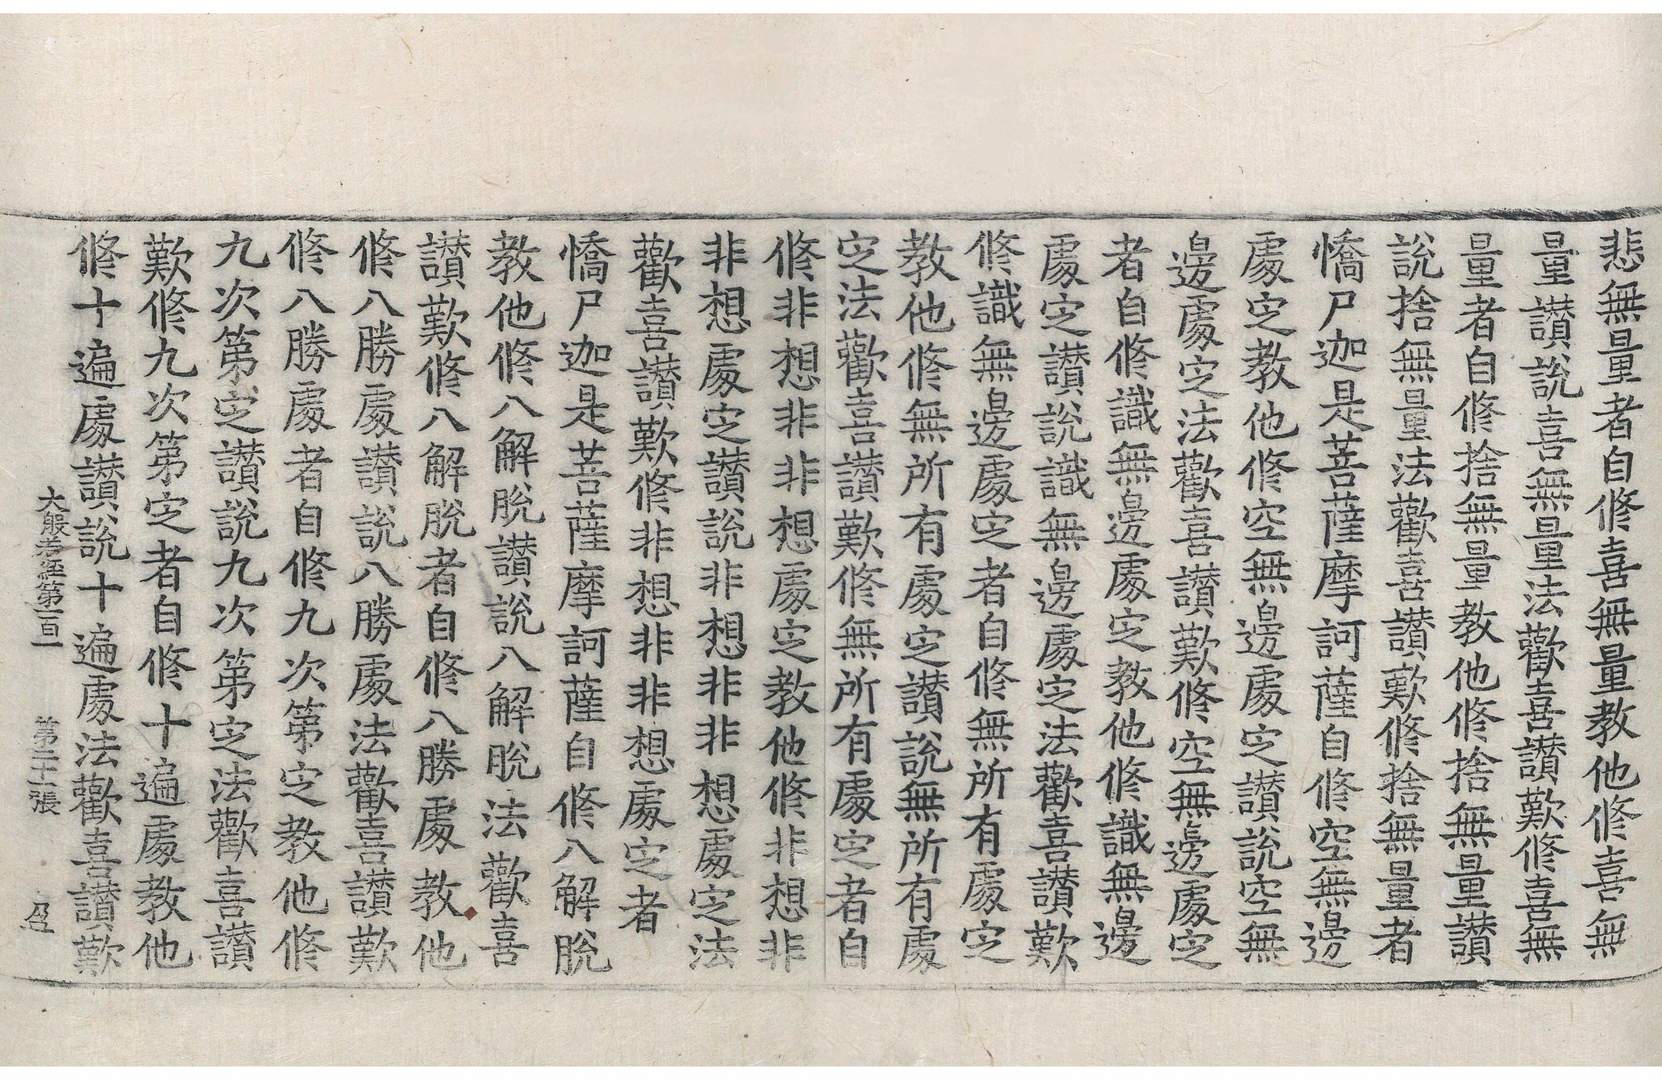 悲無量者自修喜無量教他修喜無
量讚說喜無量法歡喜讚歎修喜無
量者自修捨無量教他修捨無量讚
說捨無量法歡喜讚歎修捨無量者
憍尸迦是菩薩摩訶薩自修空無邊
處定教他修空無邊處定讚說空無
邊處定法歡喜讚歎修空無邊處定
者自修識無邊處定教他修識無邊
處定讚說識無邊處定法歡喜讚歎
修識無邊處定者自修無所有處定
教他修無所有處定讚說無所有處
定法歡喜讚歎修無所有處定者自
修非想非非想處定教他修非想非
非想處定讚說非想非非想處定法
歡喜讚歎修非想非非想處定者
憍尸迦是菩薩摩訶薩自修八解脫
教他修八解脫讚說八解脫法歡喜
讚歎修八解脫者自修八勝處教他
修八勝處讚說八勝處法歡喜讚歎
修八勝處者自修九次第定教他修
九次第定讚說九次第定法歡喜讚
歎修九次第定者自修十遍處教他
修十遍處讚說十遍處法歡喜讚歎
大般若經第一百一 第張 盈